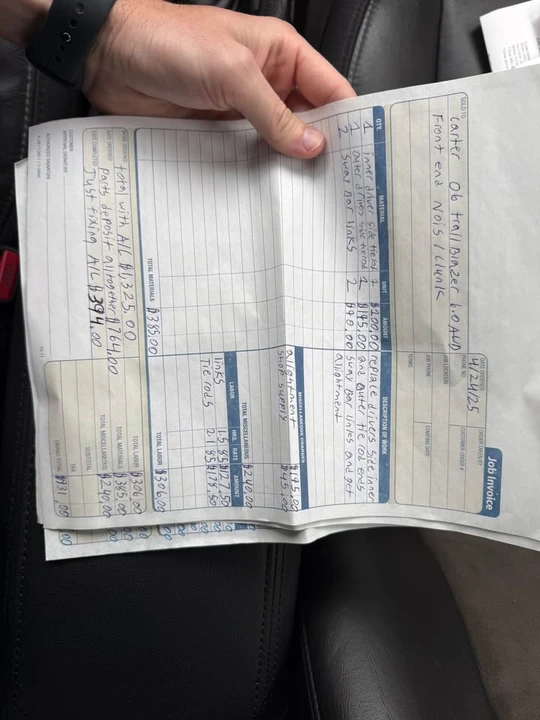 Job Invoice
SOLD TO
Carter 06 trail Blazer 6.0 AWD
Front end Nois / Clunk
DATE ORDERED
4-24/25
ORDER TAKEN BY
PHONE NO.
CUSTOMER ORDER #
JOB LOCATION
JOB PHONE
STARTING DATE
TERMS
QTY. MATERIAL UNIT AMOUNT
1 inner driver side tie rod 1 $100.00
1 outer drivers side tie rod 1 $195.00
2 sway bar links 2 $90.00
TOTAL MATERIALS $385.00
DESCRIPTION OF WORK
replace drivers side inner
and outer tie rod ends
sway bar links and get
alightment
MISCELLANEOUS CHARGES
alightment $195.00
shop supply $45.00
TOTAL MISCELLANEOUS $240.00
LABOR HRS. RATE AMOUNT
links
Tie rods
TOTAL LABOR $306.00
total with A/C $1,325.00
Parts deposit alltogether $764.00
Just fixing A/C $394.00
WORK ORDERED
DATE ORDERED
DATE COMPLETED
CUSTOMER
APPROVAL SIGNATURE
AUTHORIZED SIGNATURE
TOTAL LABOR $306.00
TOTAL MATERIALS $385.00
TOTAL MISCELLANEOUS $240.00
SUBTOTAL
TAX
GRAND TOTAL $931.00